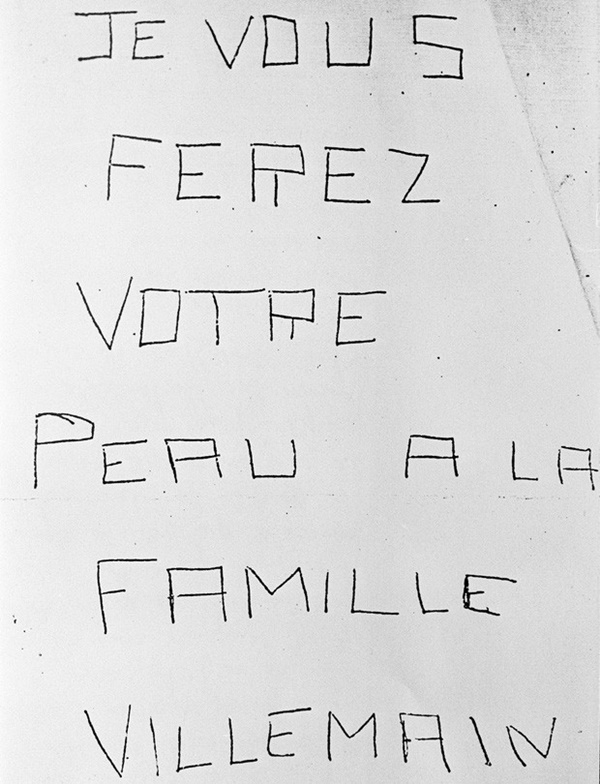 JE VOUS
FEREZ
VOTRE
PEAU A LA
FAMILLE
VILLEMAIN